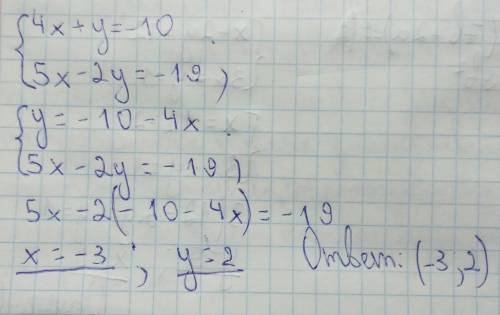 {4x + y = -10
5x - 2y = -19,
{y = -10 - 4x
5x - 2y = -19,
5x - 2(-10 - 4x) = -19
x = -3, y = 2 Ответ: (-3, 2)